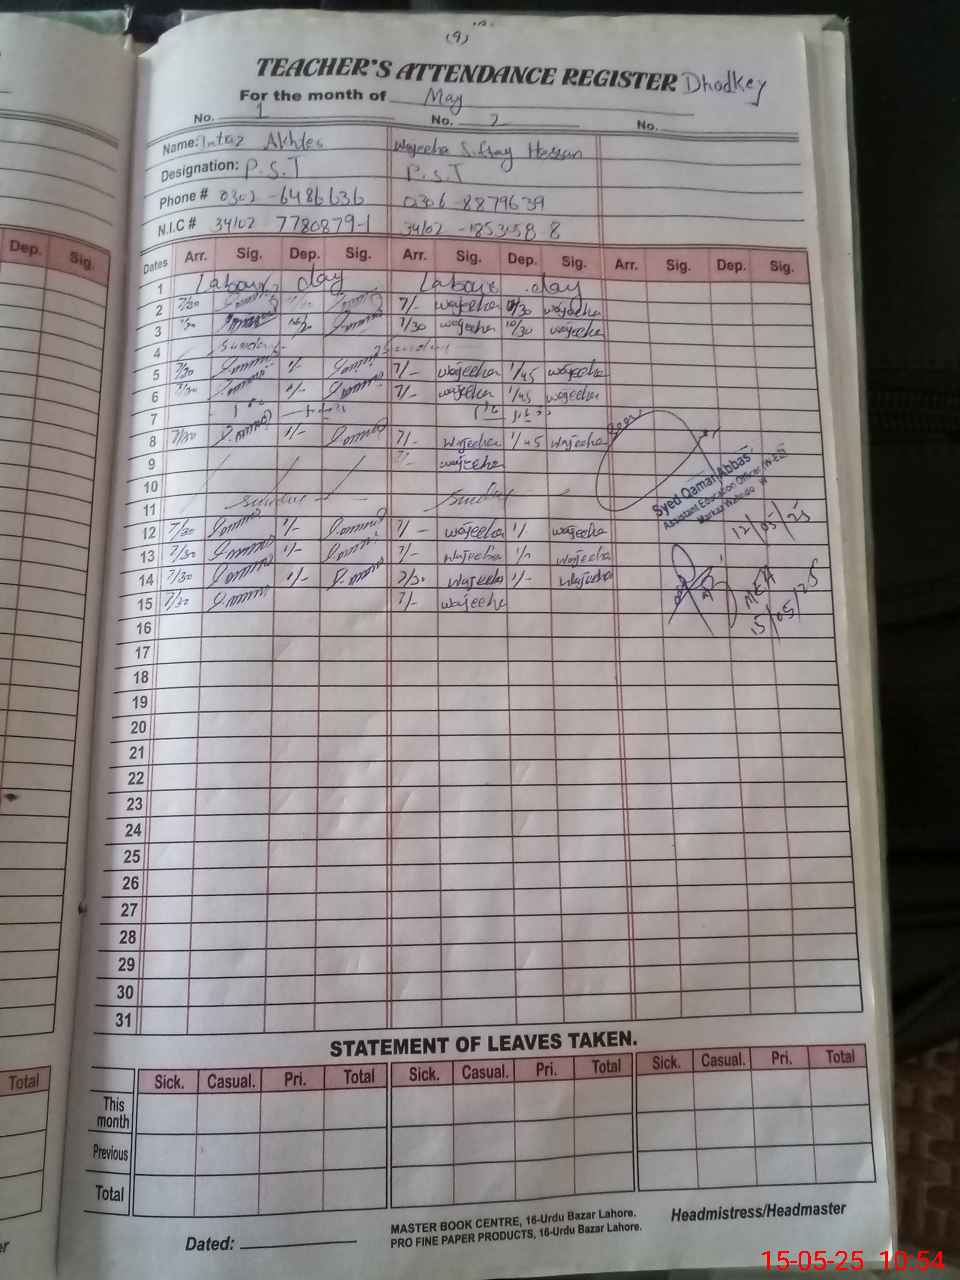 (9)
TEACHER'S ATTENDANCE REGISTER Dhodkey
For the month of May
No. 1 No. 2 No.
Name: Intaz Akhtes Wajeeha Hassan
Designation: P.S.T P.S.T
Phone # 0302-6486636 0306-8879639
N.I.C # 34102 7780879-1 34102
Dep. Sig.
Dates Arr. Sig. Dep. Sig. Arr. Sig. Dep. Sig. Arr. Sig. Dep. Sig.
1 Labour day Labour day
2 7/30 7/- wajeeha /30 wajeeha
3 7/30 7/30 wajeeha 10/30 wajeeha
4 Sunday Sunday
5 7/30 1/- 7/- wajeeha 1/45 wajeeha
6 7/30 1/- 7/- wajeeha 1/45 wajeeha
7
8 7/30 1/- 7/- wajeeha 1/45 wajeeha
9 7/- wajeeha
10
11 Sunday Sunday
12 7/30 1/- 7/- wajeeha 1/- wajeeha
13 7/30 1/- 7/- wajeeha 1/- wajeeha
14 7/30 1/- 7/30 wajeeha 1/- wajeeha
15 7/30 7/- wajeeha
Syed Qamar Abbas
Assistant Education Officer
Markaz
12/05/25
MEA
15/05/25
16
17
18
19
20
21
22
23
24
25
26
27
28
29
30
31
STATEMENT OF LEAVES TAKEN.
Total
Sick. Casual. Pri. Total Sick. Casual. Pri. Total Sick. Casual. Pri. Total
This month
Previous
Total
Dated:
MASTER BOOK CENTRE, 16-Urdu Bazar Lahore.
PRO FINE PAPER PRODUCTS, 16-Urdu Bazar Lahore.
Headmistress/Headmaster
15-05-25 10:54